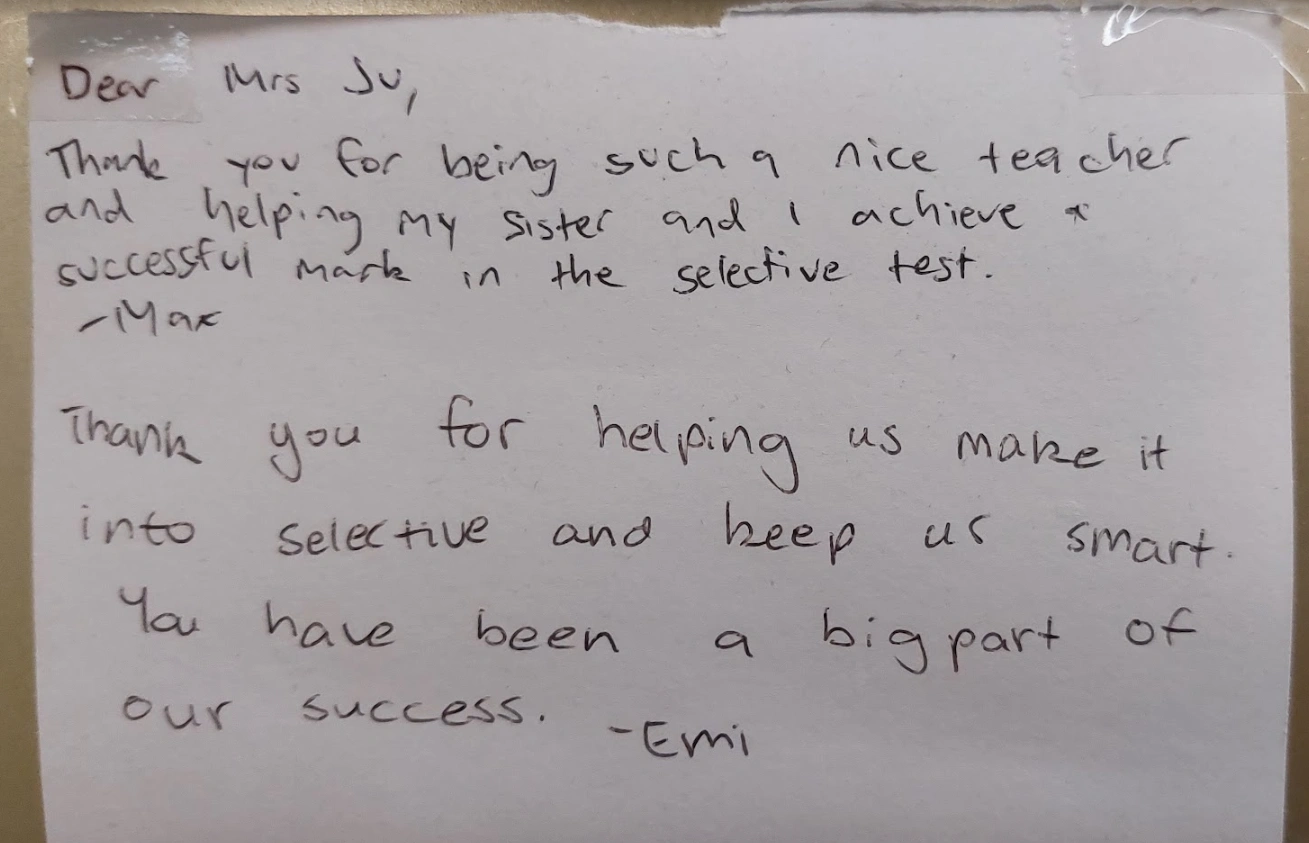 Dear Mrs Ju,
Thank you for being such a nice teacher
and helping my sister and I achieve a
successful mark in the selective test.
-Max
Thank you for helping us make it
into selective and keep us smart.
You have been a big part of
our success.
-Emi